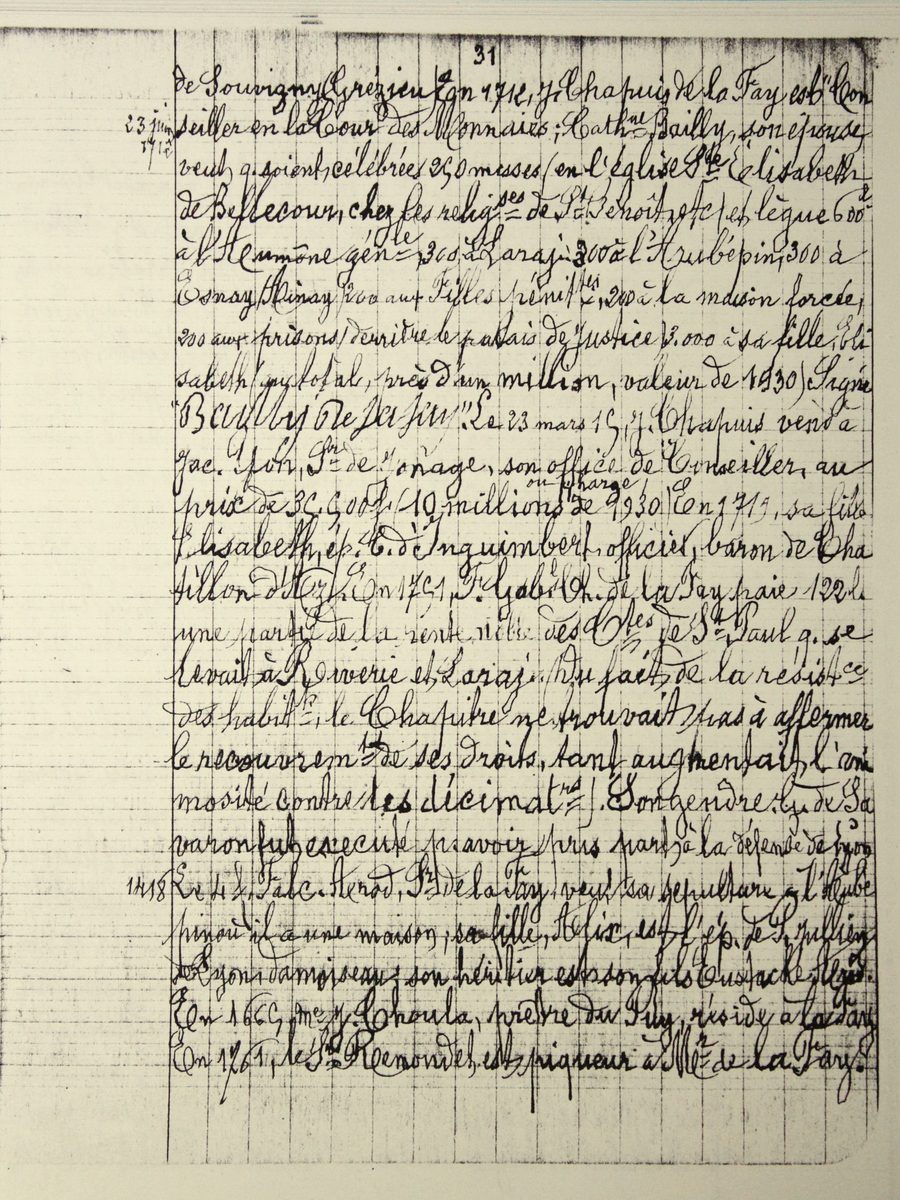 31
de Souvigny (Grézieu) En 1712, J. Chapuis de la Fay est "Con
23 juin 1712
seiller en la Cour des Monnaies; Cath.ne Bailly, son épouse,
veut q. soient célébrées 250 messes (en l'église Ste Élisabeth
de Bellecour, chez les relig.ses de St Benoît, etc) et lègue 600 l
à l'Aumône génle, 300 à Laraj. 300 à l'Aubépin, 300 à
Esnay (Ainay) 200 aux Filles pénit.tes, 200 à la maison forcée,
200 aux prisons (derrière le palais de Justice) 3.000 à sa fille Éli
sabeth (au total, près d'un million, valeur de 1930) Signé
"Bailly De La Fay". Le 23 mars 15, J. Chapuis vend à
Jac. Yon, Sr de Jonage, son office de Conseiller, au
ou charge
prix de 35.500 f. (10 millions de 1930) En 1719, sa fille
Élisabeth, ép. E. d'Inguimbert, officier, baron de Cha
tillon d'Az. En 1751, F. Gabl Ch. de la Fay paie 122 l.
une partie de la rente noble des Ctes de St Paul q. se
levait à Riverie et Laraj. (Du fait de la résistce
des habitts, le Chapitre ne trouvait pas à affermer
le recouvremt de ses droits, tant augmentait l'ani
mosité contre les décimatrs). Son gendre de Sa
varon fut exécuté p. avoir pris part à la défense de Lyon
1418
Le 4 Falc. Aerod, Sr de la Fay, veut sa sépulture à l'Aube
pin où il a une maison; sa fille, Alix, est l'ép. de P. Jullien
de Lyon, damoiseau; son héritier est son fils Eustache
En 1665, Me J. Choula, prêtre du Puy, réside à la Fay
En 1761, le Sr Remondet est piqueur à Mr de la Fay.